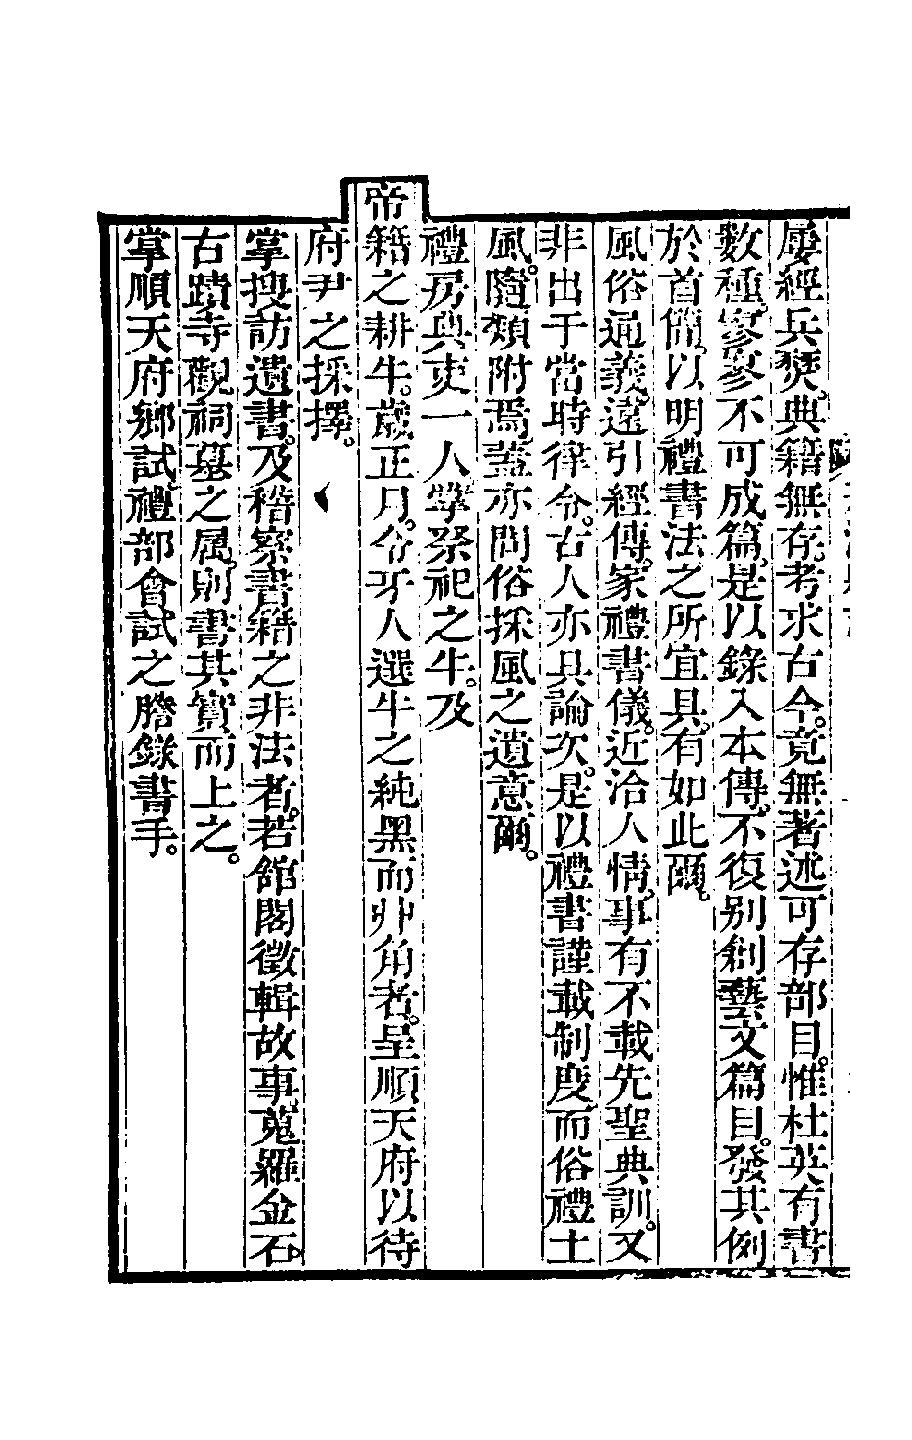 屢經兵燹典籍無存考求古今竟無著述可存部目惟杜英有書
數種寥寥不可成篇是以錄入本傳不復别創藝文篇目發其例
於首簡以明禮書法之所宜具有如此爾
風俗通義遠引經傳家禮書儀近洽人情事有不載先聖典訓又
非出于當時律令古人亦具論次是以禮書謹載制度而俗禮土
風隨類附焉葢亦問俗採風之遺意爾
禮房典吏一人掌祭祀之牛及
帝籍之耕牛歲正月令牙人選牛之純黑而丱角者呈順天府以待
府尹之採擇
掌搜訪遺書及稽察書籍之非法者若舘閣徵輯故事蒐羅金石
古蹟寺觀祠墓之属則書其實而上之
掌順天府鄉試禮部會試之謄錄書手